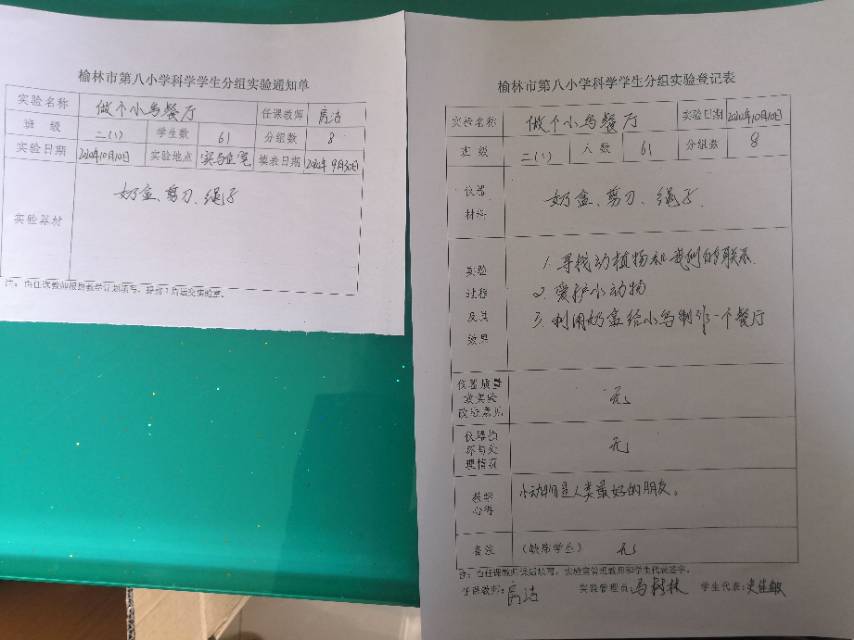 榆林市第八小学科学学生分组实验通知单
实验名称 做个小鸟餐厅 任课教师
班 级 二(1) 学生数 61 分组数 8
实验日期 2020年10月10日 实验地点 实验室 填表日期 2020年9月30日
实验器材 奶盒、剪刀、绳子
注：由任课教师根据教学计划填写，
榆林市第八小学科学学生分组实验登记表
实验名称 做个小鸟餐厅 实验日期 2020年10月10日
班 级 二(1) 人 数 61 分组数 8
仪器
材料
奶盒、剪刀、绳子
实验
过程
及其
效果
1. 寻找动植物和我们的联系
2. 爱护小动物
3. 利用奶盒给小鸟制作一个餐厅
仪器质量
或实验
改进意见
无
仪器损
坏与处
理情况
无
教学
心得
小动物是人类最好的朋友。
备注 (缺席学生) 无
注：由任课教师课后填写，实验室管理教师和学生代表签字。
任课教师: 实验管理员: 马树林 学生代表: